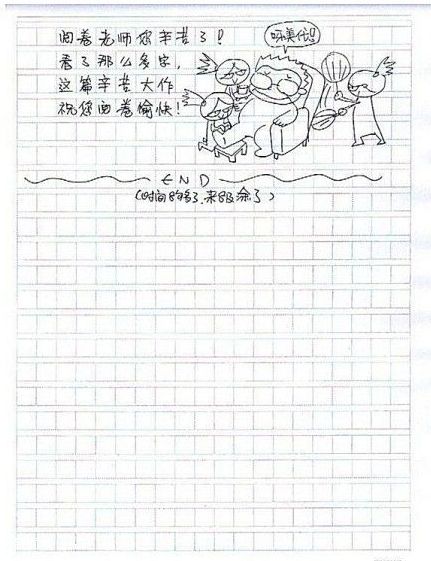 阅卷老师您辛苦了!
看了那么多字,
这篇辛苦大作
祝您阅卷愉快!
END
(时间8够了.来8及涂了)